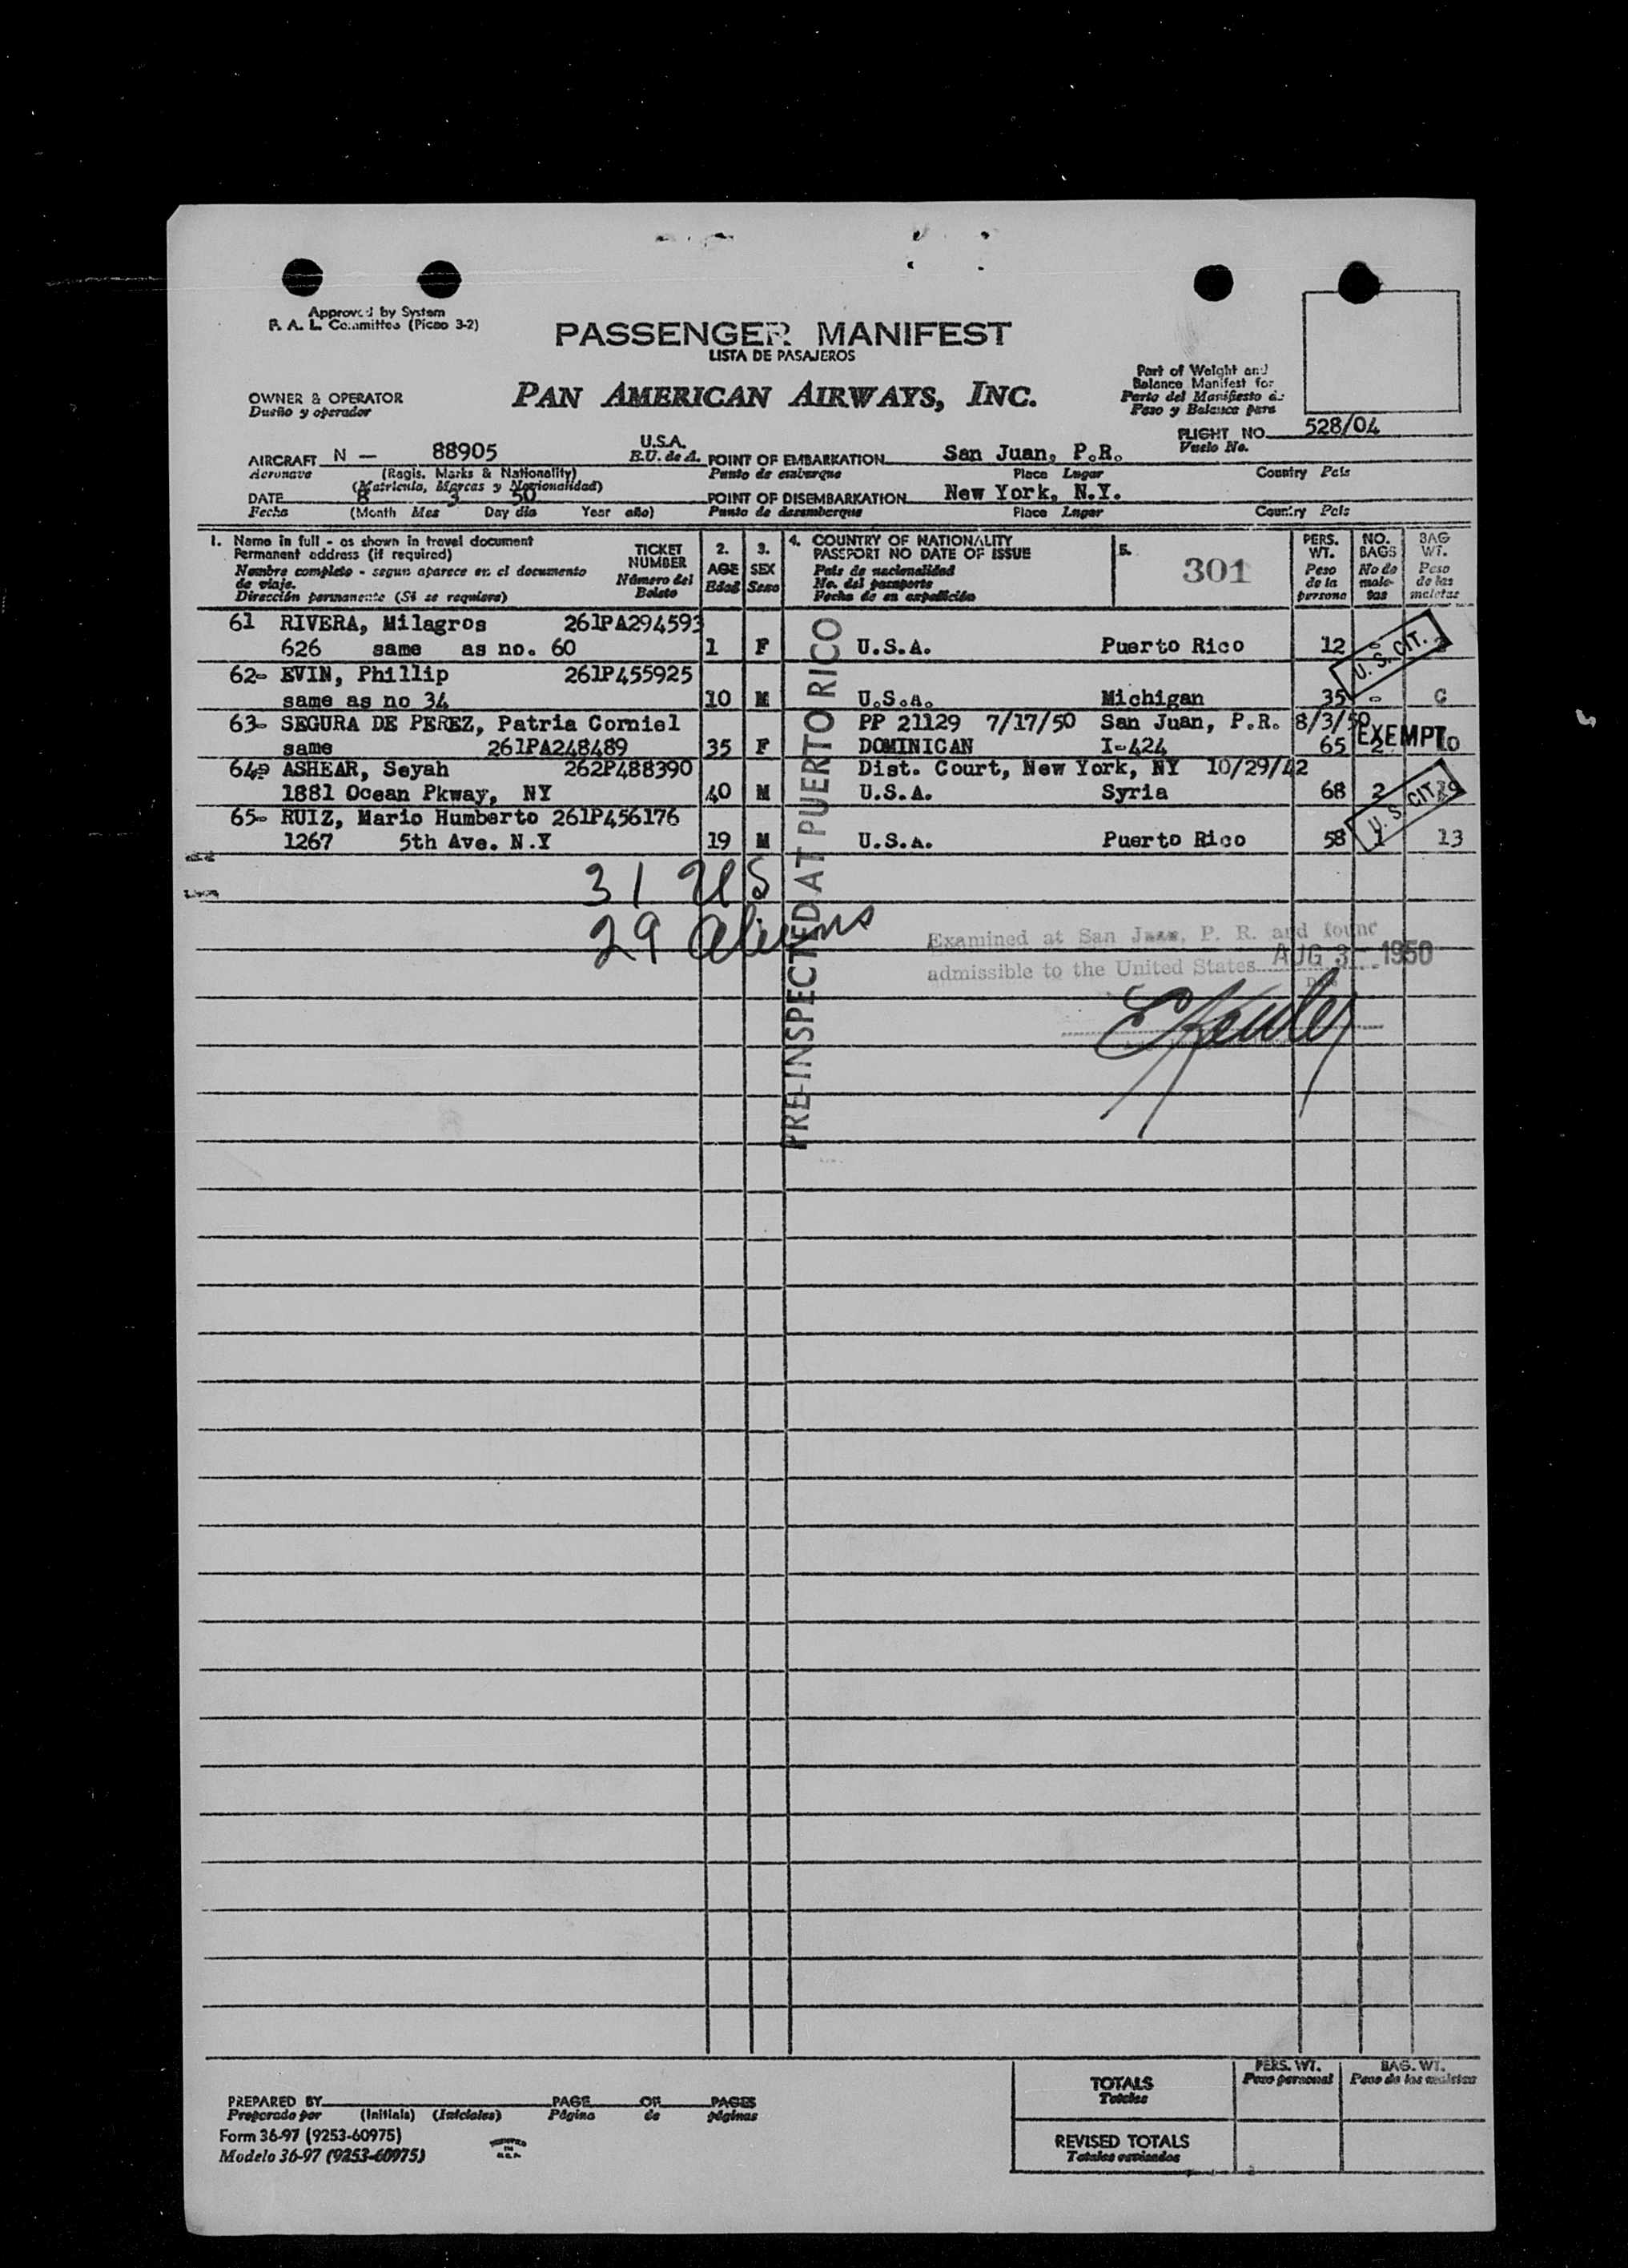 Approved by System
P. A. L. Committee (Picao 3-2)
PASSENGER MANIFEST
LISTA DE PASAJEROS
PAN AMERICAN AIRWAYS, INC.
OWNER & OPERATOR
Dueño y operador
Part of Weight and
Balance Manifest for
Parte del Manifiesto de
Peso y Balance para
FLIGHT NO. 528/04
Vuelo No.
AIRCRAFT N — 88905 U.S.A.
E.U. de A.
Aeronave (Regis. Marks & Nationality)
(Matricula, Marcas y Nacionalidad)
POINT OF EMBARKATION San Juan, P.R.
Punto de embarque Place Lugar Country Pais
DATE 8 3 50
Fecha (Month Mes Day dia Year año)
POINT OF DISEMBARKATION New York, N.Y.
Punto de desembarque Place Lugar Country Pais
1. Name in full - as shown in travel document
Permanent address (if required)
Nombre completo - segun aparece en el documento
de viaje.
Dirección permanente (Si se requiere)
TICKET
NUMBER
Número del
Boleto
2.
AGE
Edad
3.
SEX
Sexo
4. COUNTRY OF NATIONALITY
PASSPORT NO DATE OF ISSUE
Pais de nacionalidad
No. del pasaporte
Fecha de su expedición
5.
301
PERS.
WT.
Peso
de la
persona
NO.
BAGS
No de
male-
tas
BAG
WT.
Peso
de las
maletas
61 RIVERA, Milagros 261PA294593
626 same as no. 60 1 F U.S.A. Puerto Rico 12 -
U. S. CIT.
62- EVIN, Phillip 261P455925
same as no 34 10 M U.S.A. Michigan 35 - C
63- SEGURA DE PEREZ, Patria Corniel PP 21129 7/17/50 San Juan, P.R. 8/3/50
same 261PA248489 35 F DOMINICAN I-424 65 2
EXEMPT
64- ASHEAR, Seyah 262P488390 Dist. Court, New York, NY 10/29/42
1881 Ocean Pkway, NY 40 M U.S.A. Syria 68 2
U. S. CIT.
65- RUIZ, Mario Humberto 261P456176
1267 5th Ave. N.Y 19 M U.S.A. Puerto Rico 58 1 13
PRE-INSPECTED AT PUERTO RICO
31 US
29 Aliens
Examined at San Juan, P. R. and found
admissible to the United States AUG 3 - 1950
Date
TOTALS
Totales
PERS. WT.
Peso personal
BAG. WT.
Peso de las maletas
REVISED TOTALS
Totales revisados
PREPARED BY PAGE OF PAGES
Preparado por (Initials) (Iniciales) Página de páginas
Form 36-97 (9253-60975)
Modelo 36-97 (9253-60975)
PRINTED
IN
U.S.A.